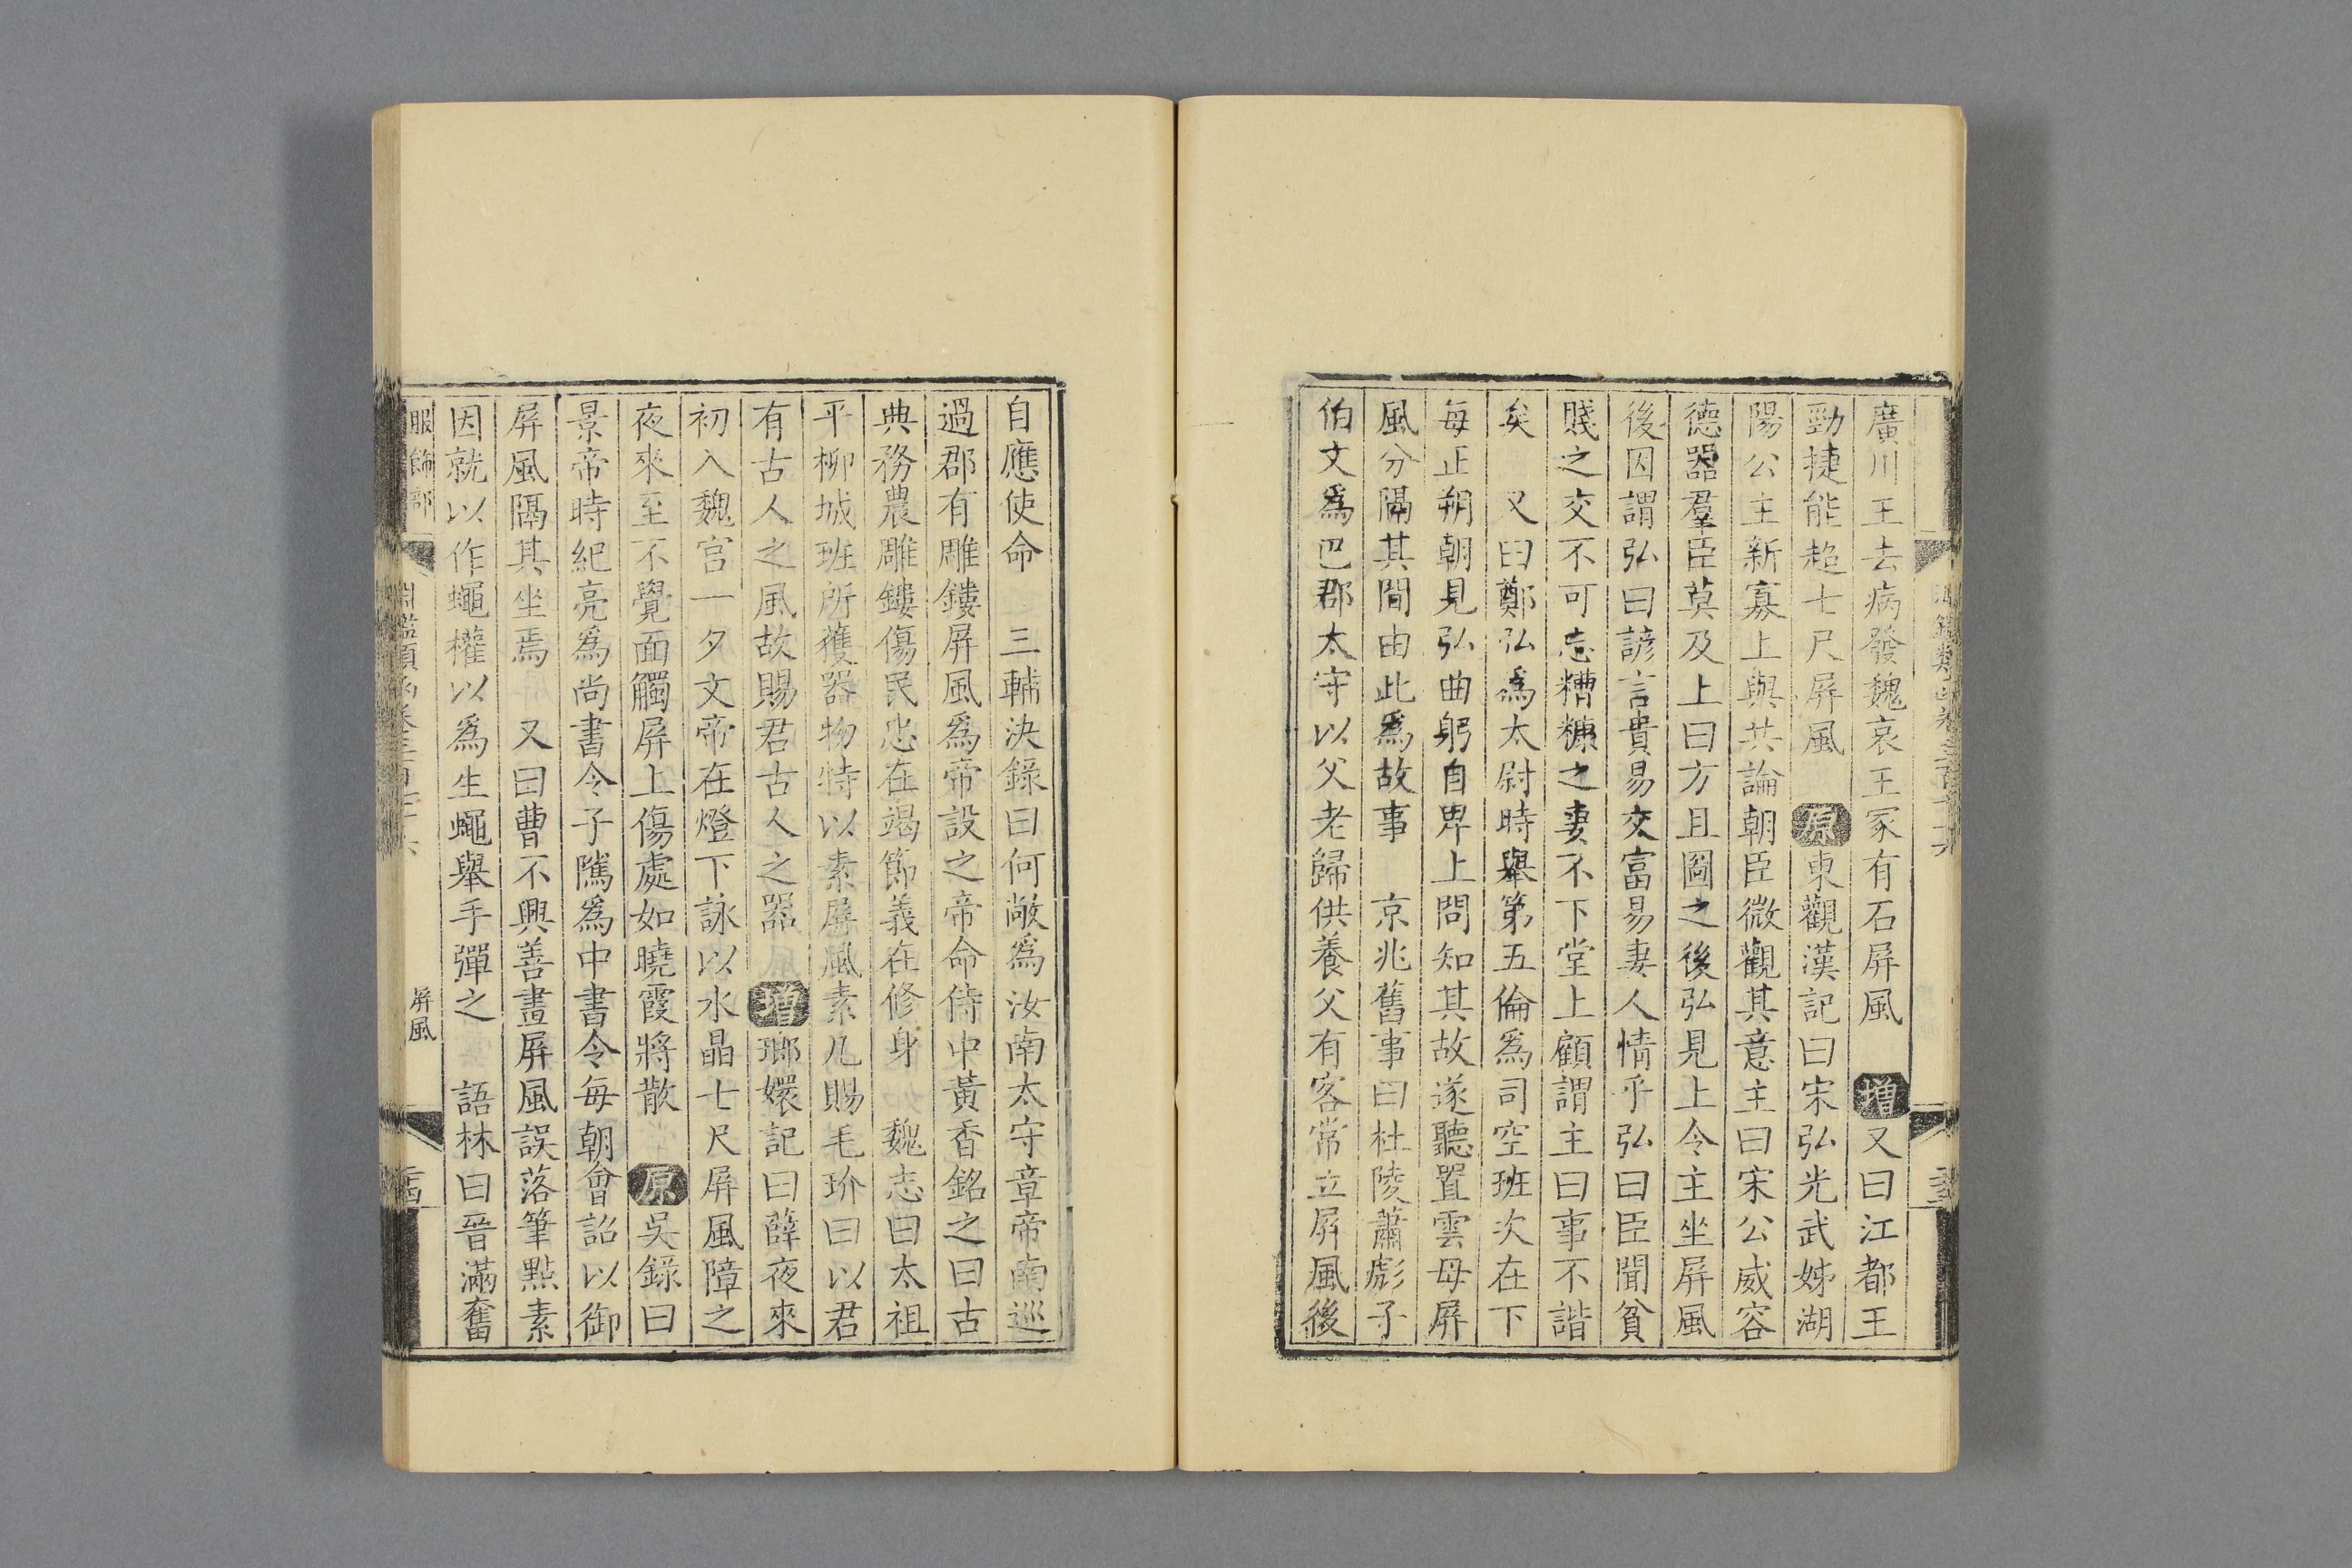 廣川王去病發魏哀王冢有石屏風　增又曰江都王
勁捷能超七尺屏風　原東觀漢記曰宋弘光武姊湖
陽公主新寡上與共論朝臣微觀其意主曰宋公威容
德器羣臣莫及上曰方且圖之後弘見上令主坐屏風
後因謂弘曰諺言貴易交富易妻人情乎弘曰臣聞貧
賤之交不可忘糟糠之妻不下堂上顧謂主曰事不諧
矣　又曰鄭弘爲太尉時舉第五倫爲司空班次在下
每正朔朝見弘曲躬自卑上問知其故遂聽置雲母屏
風分隔其間由此爲故事　京兆舊事曰杜陵蕭彪子
伯文爲巴郡太守以父老歸供養父有客常立屏風後
自應使命　三輔決錄曰何敞爲汝南太守章帝南巡
過郡有雕鏤屏風爲帝設之帝命侍中黃香銘之曰古
典務農雕鏤傷民忠在竭節義在修身　魏志曰太祖
平柳城班所獲器物特以素屏風素几賜毛玠曰以君
有古人之風故賜君古人之器　增瑯嬛記曰薛夜來
初入魏宮一夕文帝在燈下詠以水晶七尺屏風障之
夜來至不覺面觸屏上傷處如曉霞將散　原吳錄曰
景帝時紀亮爲尚書令子隲爲中書令每朝會詔以御
屏風隔其坐焉　又曰曹不興善畫屏風誤落筆點素
因就以作蠅權以爲生蠅舉手彈之　語林曰晉滿奮
服飾部
屏風